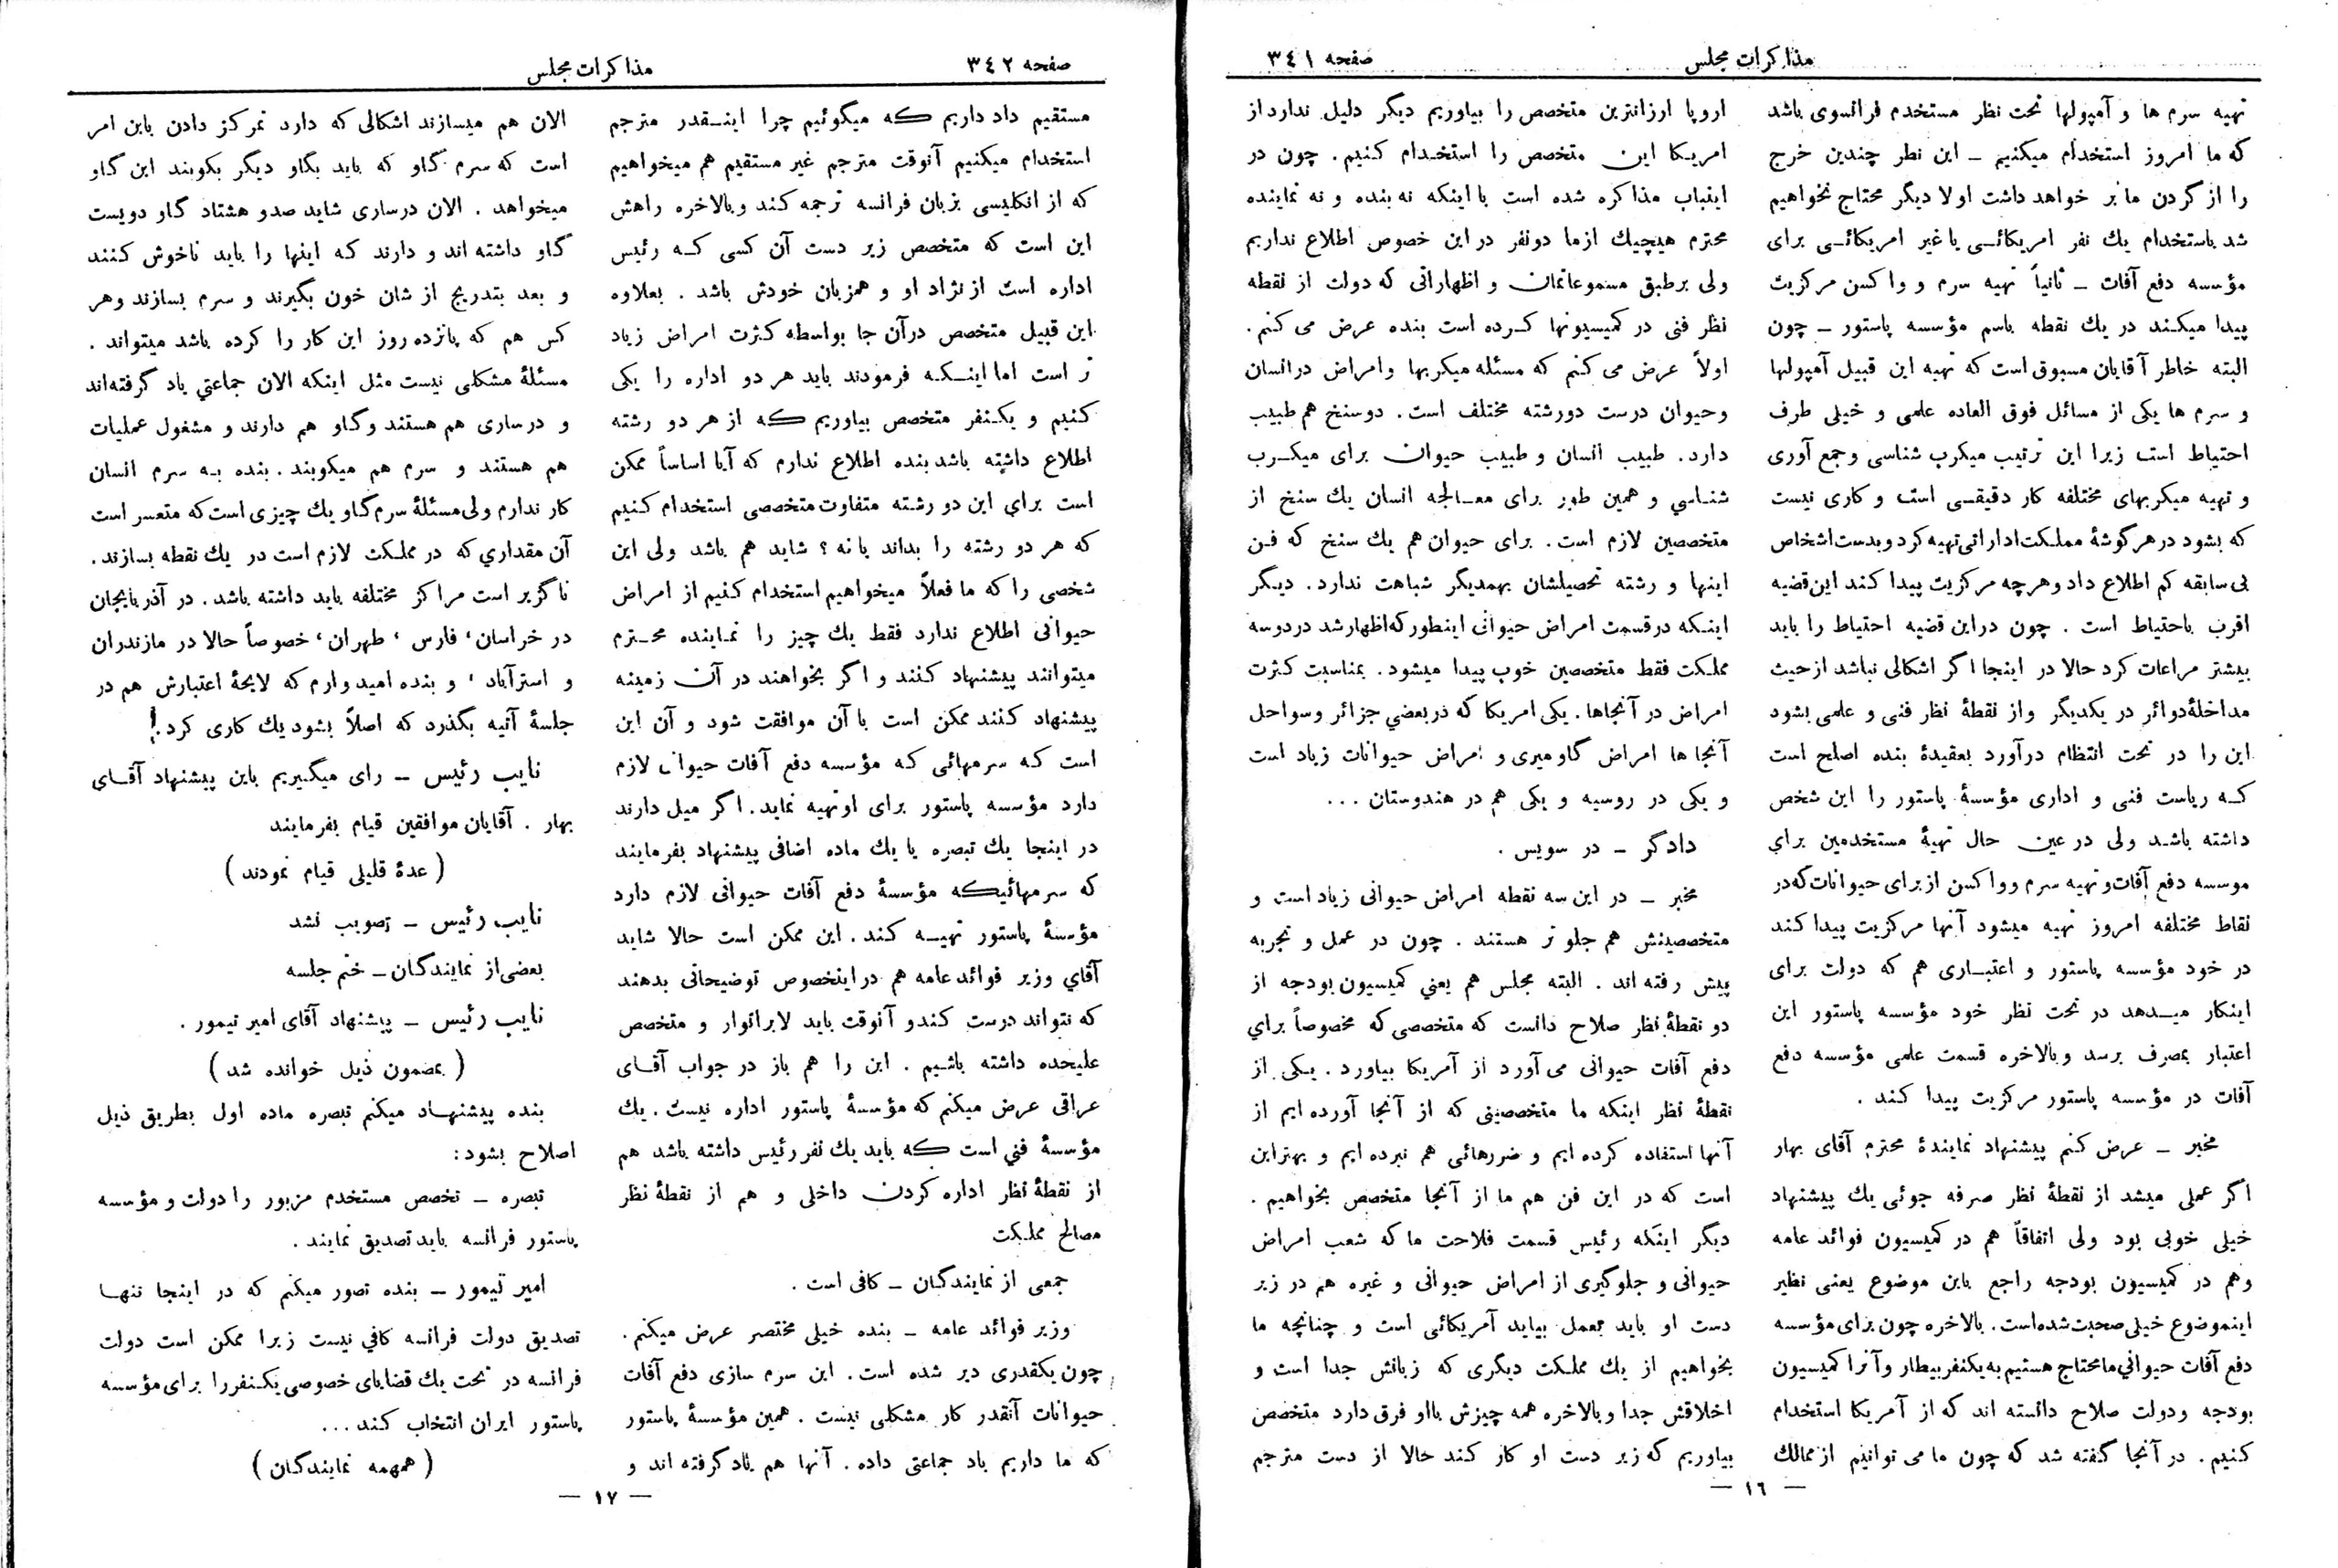 مذاکرات مجلس
صفحه ۳٤۱
تهیه سرم ها و آمپولها تحت نظر مستخدم فرانسوی باشد
که ما امروز استخدام میکنیم ـ این نظر چندین خرج
را از گردن ما بر خواهد داشت اولا دیگر محتاج نخواهیم
شد باستخدام یك نفر امریکائی یا غیر امریکائی برای
مؤسسه دفع آفات ـ ثانیاً تهیه سرم و واکسن مرکزیت
پیدا میکند در یك نقطه باسم مؤسسه پاستور ـ چون
البته خاطر آقایان مسبوق است که تهیه این قبیل آمپولها
و سرم ها یکی از مسائل فوق العاده علمی و خیلی طرف
احتیاط است زیرا این ترتیب میکرب شناسی و جمع آوری
و تهیه میکربهای مختلفه کار دقیقی است و کاری نیست
که بشود در هر گوشهٔ مملکت اداراتی تهیه کرد و بدست اشخاص
بی سابقه کم اطلاع داد و هر چه مرکزیت پیدا کند این قضیه
اقرب باحتیاط است . چون در این قضیه احتیاط را باید
بیشتر مراعات کرد حالا در اینجا اگر اشکالی نباشد از حیث
مداخلهٔ دوائر در یکدیگر و از نقطهٔ نظر فنی و علمی بشود
این را در تحت انتظام در آورد بعقیدهٔ بنده اصلح است
که ریاست فنی و اداری مؤسسهٔ پاستور را این شخص
داشته باشد ولی در عین حال تهیهٔ مستخدمین برای
موسسه دفع آفات و تهیه سرم و واکسن از برای حیوانات که در
نقاط مختلفه امروز تهیه میشود آنها مرکزیت پیدا کند
در خود مؤسسه پاستور و اعتباری هم که دولت برای
اینکار میدهد در تحت نظر خود مؤسسه پاستور این
اعتبار بمصرف برسد و بالاخره قسمت علمی مؤسسه دفع
آفات در مؤسسه پاستور مرکزیت پیدا کند .
مخبر ـ عرض کنم پیشنهاد نمایندهٔ محترم آقای بهار
اگر عملی میشد از نقطهٔ نظر صرفه جوئی یك پیشنهاد
خیلی خوبی بود ولی اتفاقاً هم در کمیسیون فوائد عامه
وهم در کمیسیون بودجه راجع باین موضوع یعنی نظیر
اینموضوع خیلی صحبت شده است . بالاخره چون برای مؤسسه
دفع آفات حیوانی ما محتاج هستیم به یکنفر بیطار و آنرا کمیسیون
بودجه و دولت صلاح دانسته اند که از آمریکا استخدام
کنیم . در آنجا گفته شد که چون ما می توانیم از ممالك
اروپا ارزانترین متخصص را بیاوریم دیگر دلیل ندارد از
امریکا این متخصص را استخدام کنیم . چون در
اینباب مذاکره شده است با اینکه نه بنده و نه نماینده
محترم هیچیك از ما دو نفر در این خصوص اطلاع نداریم
ولی بر طبق مسموعاتمان و اظهاراتی که دولت از نقطه
نظر فنی در کمیسیونها کرده است بنده عرض می کنم .
اولاً عرض می کنم که مسئله میکربها و امراض در انسان
و حیوان درست دو رشته مختلف است . دو سنخ هم طبیب
دارد . طبیب انسان و طبیب حیوان برای میکرب
شناسي و همین طور برای معالجه انسان یك سنخ از
متخصصین لازم است . برای حیوان هم یك سنخ که فن
اینها و رشته تحصیلشان بهمدیگر شباهت ندارد . دیگر
اینکه در قسمت امراض حیوانی اینطور که اظهار شد در دو سه
مملکت فقط متخصصین خوب پیدا میشود . بمناسبت کثرت
امراض در آنجاها . یکی امریکا که در بعضي جزائر و سواحل
آنجا ها امراض گاو میری و امراض حیوانات زیاد است
و یکی در روسیه و یکی هم در هندوستان ...
دادگر ـ در سویس .
مخبر ـ در این سه نقطه امراض حیوانی زیاد است و
متخصصینش هم جلو تر هستند . چون در عمل و تجربه
پیش رفته اند . البته مجلس هم یعني کمیسیون بودجه از
دو نقطهٔ نظر صلاح دانست که متخصصی که مخصوصاً براي
دفع آفات حیوانی می آورد از آمریکا بیاورد . یکی از
نقطهٔ نظر اینکه ما متخصصینی که از آنجا آورده ایم از
آنها استفاده کرده ایم و ضررهائی هم نبرده ایم و بهتر این
است که در این فن هم ما از آنجا متخصص بخواهیم .
دیگر اینکه رئیس قسمت فلاحت ما که شعب امراض
حیوانی و جلوگیری از امراض حیوانی و غیره هم در زیر
دست او باید بعمل بیاید آمریکائی است و چنانچه ما
بخواهیم از یك مملکت دیگری که زبانش جدا است و
اخلاقش جدا و بالاخره همه چیزش با او فرق دارد متخصص
بیاوریم که زیر دست او کار کند حالا از دست مترجم
— ۱٦ —
صفحه ۳٤۲
مذاکرات مجلس
مستقیم داد داریم که میگوئیم چرا اینقدر مترجم
استخدام میکنیم آنوقت مترجم غیر مستقیم هم میخواهیم
که از انکلیسی بزبان فرانسه ترجمه کند و بالاخره راهش
این است که متخصص زیر دست آن کسی که رئیس
اداره است از نژاد او و همزبان خودش باشد . بعلاوه
این قبیل متخصص در آن جا بواسطه کثرت امراض زیاد
تر است اما اینکه فرمودند باید هر دو اداره را یکی
کنیم و یکنفر متخصص بیاوریم که از هر دو رشته
اطلاع داشته باشد بنده اطلاع ندارم که آیا اساساً ممکن
است براي این دو رشته متفاوت متخصصی استخدام کنیم
که هر دو رشته را بداند یا نه ؟ شاید هم باشد ولی این
شخصی را که ما فعلاً میخواهیم استخدام کنیم از امراض
حیوانی اطلاع ندارد فقط یك چیز را نماینده محترم
میتوانند پیشنهاد کنند و اگر بخواهند در آن زمینه
پیشنهاد کنند ممکن است با آن موافقت شود و آن این
است که سرمهائی که مؤسسه دفع آفات حیوانی لازم
دارد مؤسسه پاستور برای او تهیه نماید . اگر میل دارند
در اینجا یك تبصره یا یك ماده اضافی پیشنهاد بفرمایند
که سرمهائیکه مؤسسهٔ دفع آفات حیوانی لازم دارد
مؤسسهٔ پاستور تهیه کند . این ممکن است حالا شاید
آقاي وزیر فوائد عامه هم در اینخصوص توضیحاتی بدهند
که نتواند درست کند و آنوقت باید لابراتوار و متخصص
علیحده داشته باشیم . این را هم باز در جواب آقای
عراقی عرض میکنم که مؤسسهٔ پاستور اداره نیست . یك
مؤسسهٔ فني است که باید یك نفر رئیس داشته باشد هم
از نقطهٔ نظر اداره کردن داخلی و هم از نقطهٔ نظر
مصالح مملکت
جمعی از نمایندگان ـ کافی است .
وزیر فوائد عامه ـ بنده خیلی مختصر عرض میکنم .
چون یکقدری دیر شده است . این سرم سازی دفع آفات
حیوانات آنقدر کار مشکلی نیست . همین مؤسسهٔ پاستور
که ما داریم یاد جماعتی داده . آنها هم یاد گرفته اند و
الان هم میسازند اشکالی که دارد تمرکز دادن باین امر
است که سرم گاو که باید بگاو دیگر بکوبند این گاو
میخواهد . الان در ساری شاید صد و هشتاد گاو دویست
گاو داشته اند و دارند که اینها را باید ناخوش کنند
و بعد بتدریج از شان خون بگیرند و سرم بسازند و هر
کس هم که پانزده روز این کار را کرده باشد میتواند .
مسئلهٔ مشکلی نیست مثل اینکه الان جماعتي یاد گرفته‌اند
و در ساری هم هستند و گاو هم دارند و مشغول عملیات
هم هستند و سرم هم میکوبند . بنده به سرم انسان
کار ندارم ولی مسئلهٔ سرم گاو یك چیزی است که متعسر است
آن مقداري که در مملکت لازم است در یك نقطه بسازند .
ناگزیر است مراکز مختلفه باید داشته باشد . در آذربایجان
در خراسان، فارس ، طهران ، خصوصاً حالا در مازندران
و استرآباد ، و بنده امیدوارم که لایحهٔ اعتبارش هم در
جلسهٔ آتیه بگذرد که اصلاً بشود یك کاری کرد !
نایب رئیس ـ رای میگیریم باین پیشنهاد آقای
بهار . آقایان موافقین قیام بفرمایند
( عدهٔ قلیلی قیام نمودند )
نایب رئیس ـ تصویب نشد
بعضی از نمایندگان ـ ختم جلسه
نایب رئیس ـ پیشنهاد آقای امیر تیمور .
( بمضمون ذیل خوانده شد )
بنده پیشنهاد میکنم تبصره ماده اول بطریق ذیل
اصلاح بشود :
تبصره ـ تخصص مستخدم مزبور را دولت و مؤسسه
پاستور فرانسه باید تصدیق نمایند .
امیر تیمور ـ بنده تصور میکنم که در اینجا تنها
تصدیق دولت فرانسه کافي نیست زیرا ممکن است دولت
فرانسه در تحت یك قضایای خصوصی یکنفر را برای مؤسسه
پاستور ایران انتخاب کند ...
( همهمه نمایندگان )
— ۱۷ —